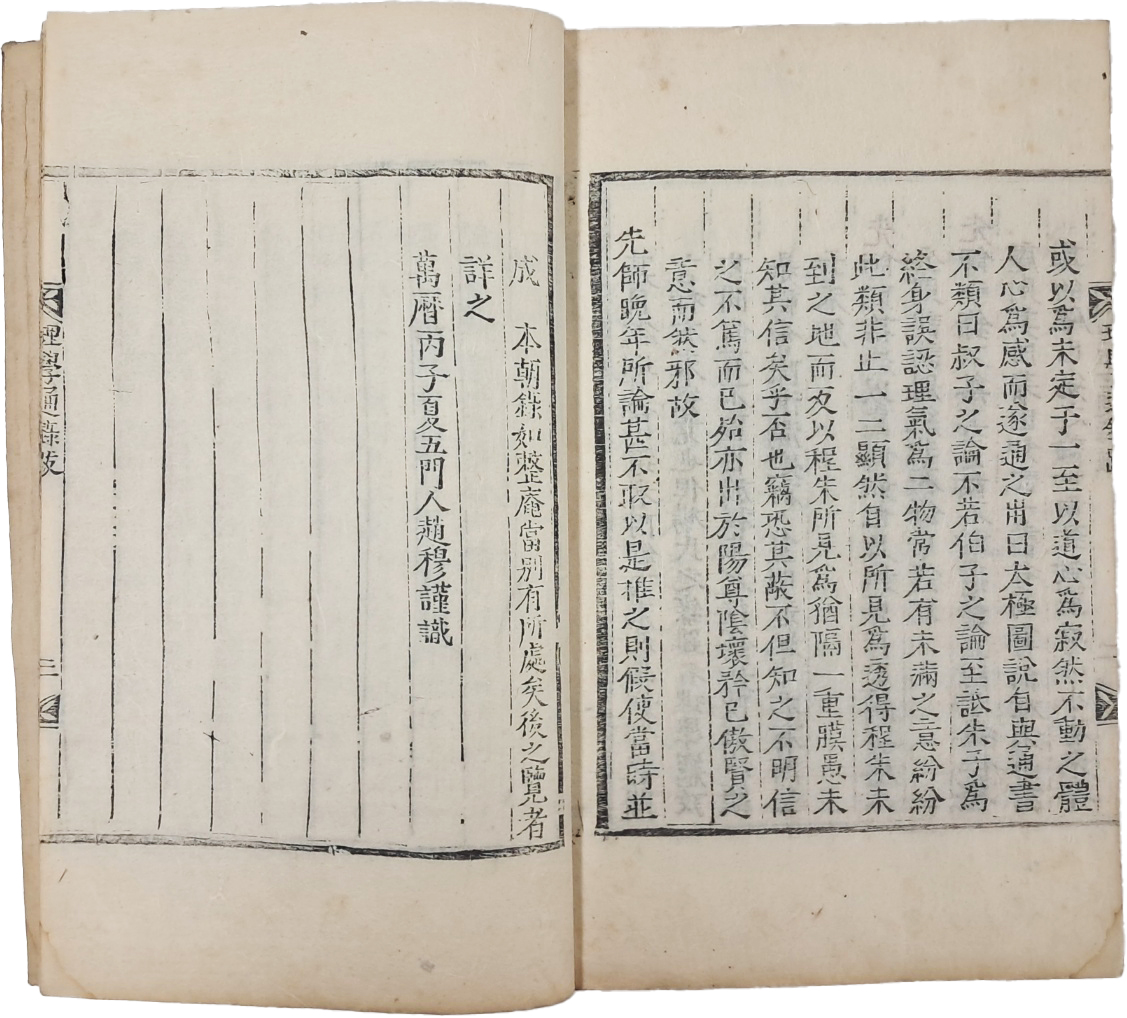 或以爲未定于一至以道心爲寂然不動之體
人心爲感而遂通之用曰太極圖說自與通書
不類曰叔子之論不若伯子之論至詆朱子爲
終身誤認理氣爲二物常若有未滿之意紛紛
此類非止一二顯然自以所見爲透得程朱未
到之地而反以程朱所見爲猶隔一重膜愚未
知其信矣乎否也竊恐其蔽不但知之不明信
之不篤而已殆亦出於陽尊陰壞矜己傲賢之
意而然邪故
先師晚年所論甚不取以是推之則假使當時並
成 本朝錄如整庵當別有所處矣後之覽者
詳之
萬曆丙子夏五門人趙穆謹識
理學通錄跋
二